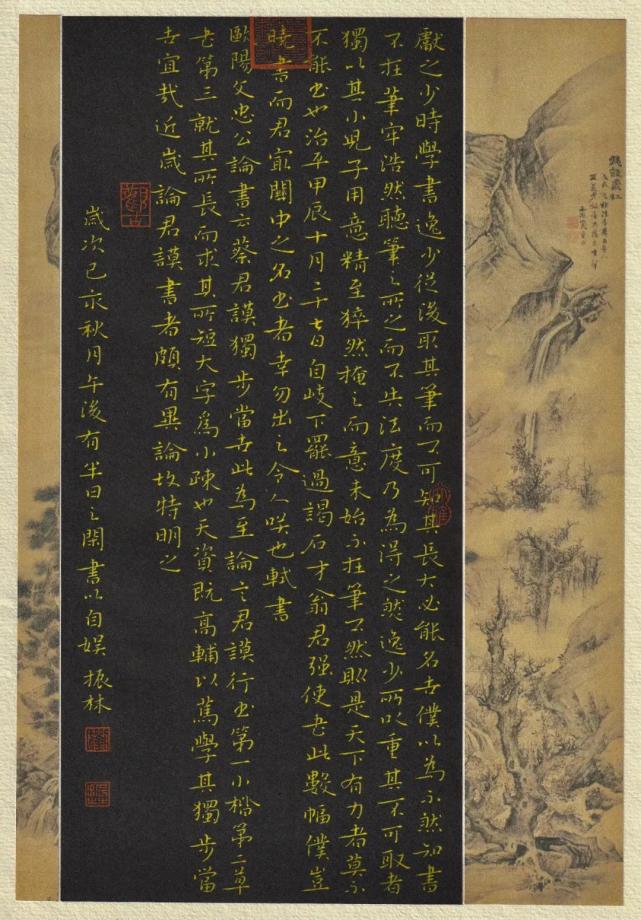 獻之少時學書逸少從後取其筆而不可知其長大必能名世僕以為不然知書
不在筆牢浩然聽筆之所之而不失法度乃為得之然逸少所以重其不可取者
獨以其小兒子用意精至猝然掩之而意未始不在筆不然則是天下有力者莫不
不能書也治平甲辰十月二十七日自岐下罷過謁石才翁君強使書此數幅僕豈
曉書而君最關中之名書者幸勿出之令人笑也軾書
歐陽文忠公論書云蔡君謨獨步當世此為至論言君謨行書第一小楷第二草
書第三就其所長而求其所短大字為小疎也天資既高輔以篤學其獨步當
世宜哉近歲論君謨書者頗有異論故特明之
歲次己亥秋月午後有半日之閑書以自娛 振林